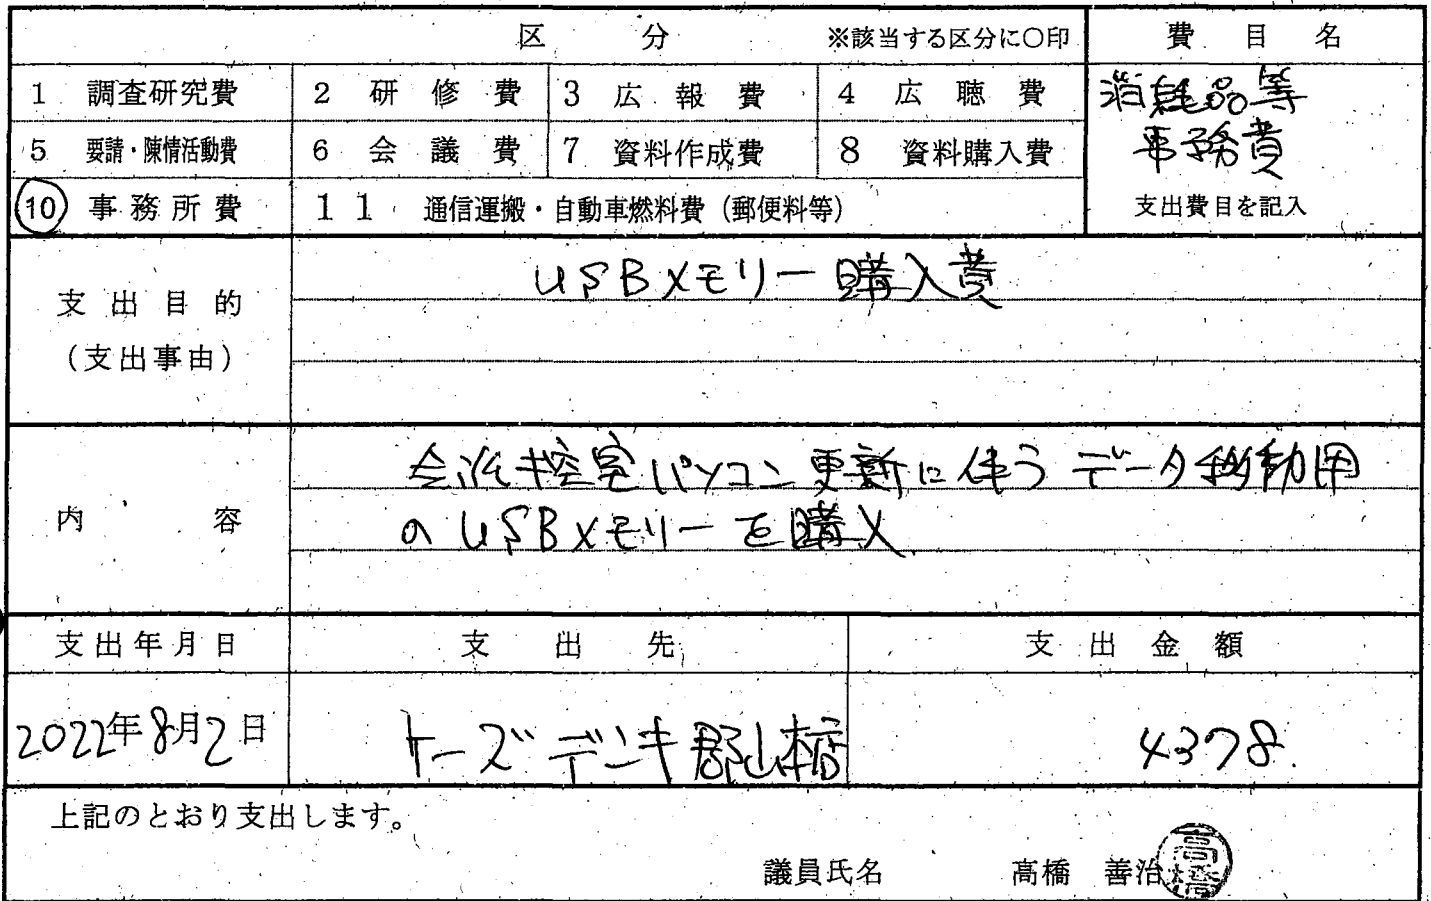 区分 ※該当する区分に○印 費目名
1 調査研究費 2 研修費 3 広報費 4 広聴費 消耗品等
5 要請・陳情活動費 6 会議費 7 資料作成費 8 資料購入費 事務費
10 事務所費 11 通信運搬・自動車燃料費（郵便料等） 支出費目を記入
支出目的 USBメモリー購入費
（支出事由）
会派控室パソコン更新に伴うデータ移動用
内容 のUSBメモリーを購入
支出年月日 支出先 支出金額
2022年8月2日 ケーズデンキ郡山本店 4378.
上記のとおり支出します。
議員氏名 高橋 善治 高橋